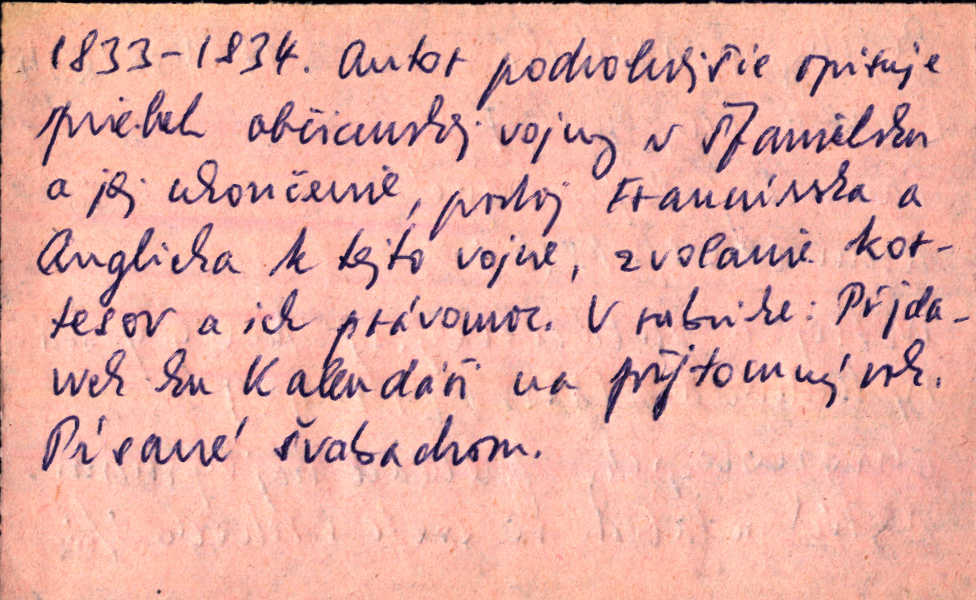 1833-1834. Autor podrobnejšie opisuje
priebeh občianskej vojny v Španielsku
a jej ukončenie, postoj Francúzska a
Anglicka k tejto vojne, zvolanie kor-
tesov a ich právomoc. V rubrike: Přjda-
wek ku Kalendáři na přjtomný rok.
Písané švabachom.